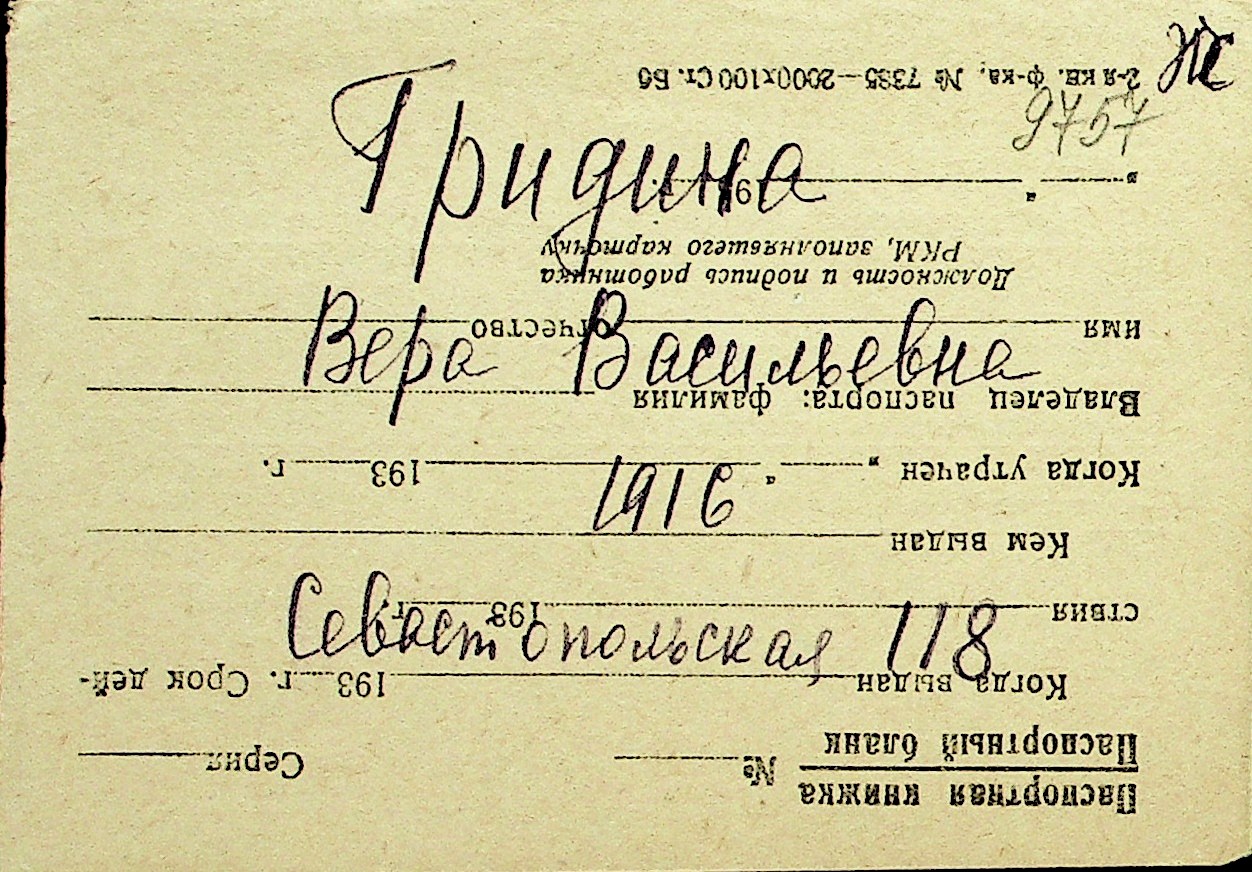 Гридина
Вера Васильевна
1916
Севастопольская 118
9757
Паспортная книжка
Паспортный бланк
№ Серия
Когда выдан 193 г. Срок дей-
ствия 193 г.
Кем выдан
Когда утрачен „ “ 193 г.
Владелец паспорта: фамилия
имя отчество
Должность и подпись работника
РКМ, заполнявшего карточку
„ “ 19 г.
2-я кв. ф-ка. № 7385—2000х100 Ст. Бб